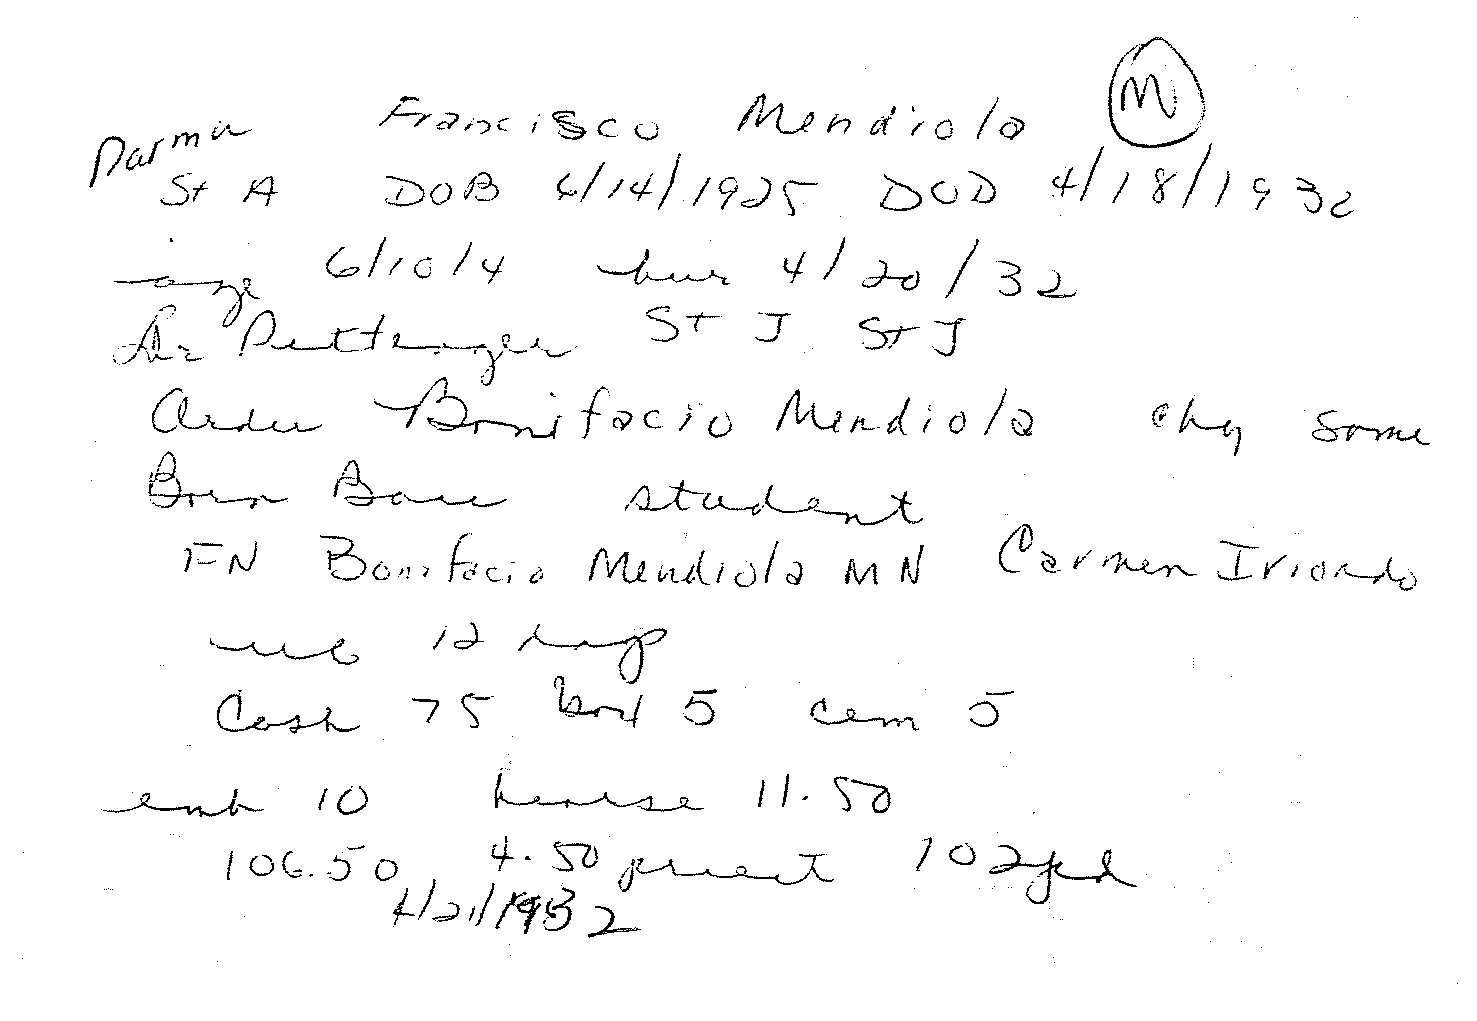 Parma Francisco Mendiola M
St A DOB 6/14/1925 DOD 4/18/1932
age 6/10/4 bur 4/20/32
Dr Pittenger St J St J
Order Bonifacio Mendiola chg same
Born Boise student
FN Bonifacio Mendiola MN Carmen Iriondo
12
Cash 75 box 5 cem 5
emb 10 hearse 11.50
106.50 4.50 priest 102 pd
4/21/1932